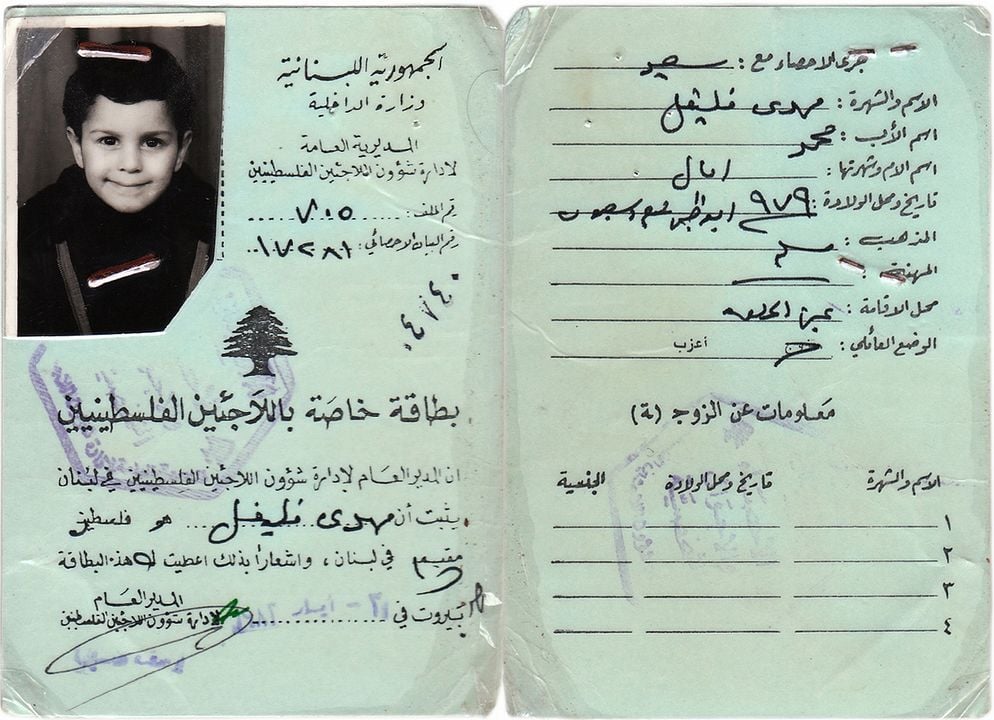 الجمهورية اللبنانية
وزارة الداخلية
المديرية العامة
لادارة شؤون اللاجئين الفلسطينيين
رقم الملف: ٧٠٥
رقم البيان الاحصائي: ١٧٢٨١
٠٤٧٤٠
بطاقة خاصة باللاجئين الفلسطينيين
ان المدير العام لادارة شؤون اللاجئين الفلسطينيين في لبنان
يثبت أن مهدى فليفل هو فلسطيني
مقيم في لبنان ، واشعاراً بذلك اعطيت له هذه البطاقة
بيروت في
المدير العام
لادارة شؤون اللاجئين الفلسطينيين
جرى الاحصاء مع :
الاسم والشهرة : مهدى فليفل
اسم الأب : محمد
اسم الام وشهرتها : امال
تاريخ ومحل الولادة : ٩٧٩
المذهب : مسلم
المهنة :
محل الاقامة : عين الحلوه
الوضع العائلي : أعزب
معلومات عن الزوج (ة)
الاسم والشهرة تاريخ ومحل الولادة الجنسية
١
٢
٣
٤